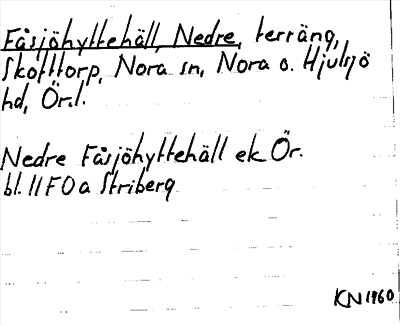 Fåsjöhyttehäll, Nedre, terräng,
Skofttorp, Nora sn, Nora o. Hjulsjö
hd, Ör.l.
Nedre Fåsjöhyttehäll ek Ör.
bl. 11F0a Striberg
KN 1960